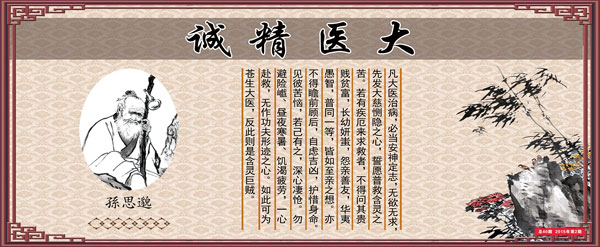 大医精诚
凡大医治病，必当安神定志，无欲无求，
先发大慈恻隐之心，誓愿普救含灵之
苦。若有疾厄来求救者，不得问其贵
贱贫富，长幼妍蚩，怨亲善友，华夷
愚智，普同一等，皆如至亲之想。亦
不得瞻前顾后，自虑吉凶，护惜身命。
见彼苦恼，若己有之，深心凄怆。勿
避险巇、昼夜寒暑、饥渴疲劳，一心
赴救，无作功夫形迹之心。如此可为
苍生大医，反此则是含灵巨贼。
孫思邈
总49期 2016年第2期